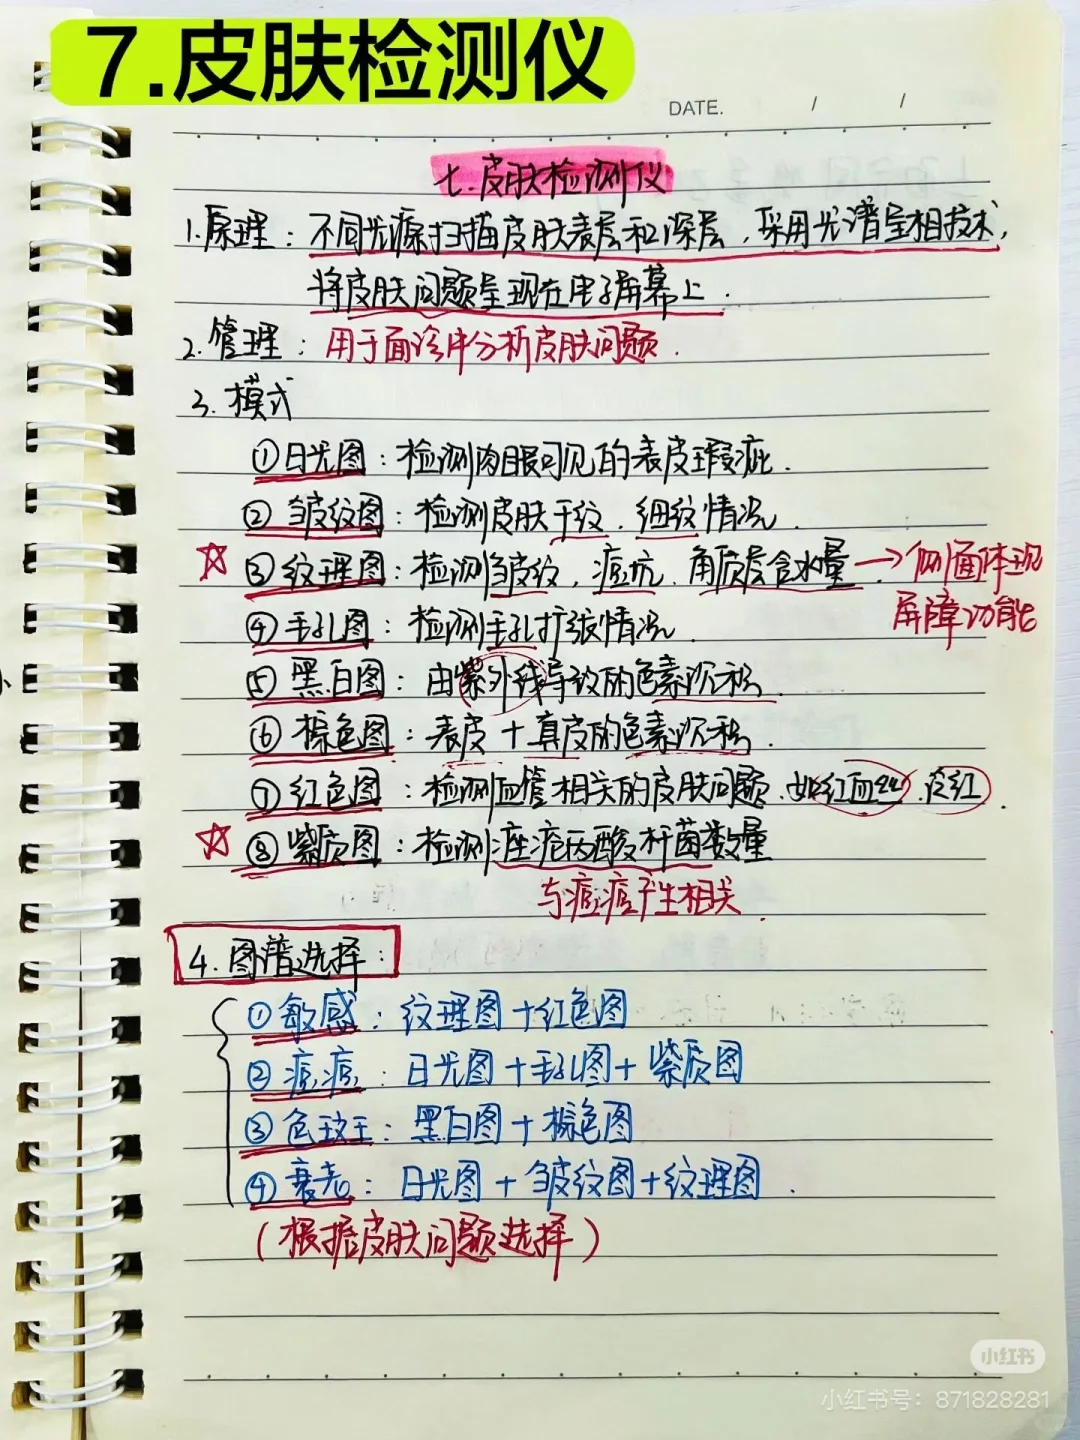 7.皮肤检测仪
DATE. / /
七.皮肤检测仪
1.原理：不同光源扫描皮肤表层和深层，采用光谱呈相技术，
将皮肤问题呈现在电子屏幕上.
2.管理：用于面诊中分析皮肤问题.
3.模式
①日光图：检测肉眼可见的表皮瑕疵.
②皱纹图：检测皮肤干纹、细纹情况.
☆ ③纹理图：检测皱纹、痘坑、角质层含水量→侧面体现
屏障功能
④毛孔图：检测毛孔扩张情况.
⑤黑白图：由紫外线导致的色素沉积.
⑥棕色图：表皮+真皮的色素沉积.
⑦红色图：检测血管相关的皮肤问题、如红血丝、皮红.
☆ ⑧紫质图：检测痤疮丙酸杆菌数量
与痘痘产生相关.
4.图谱选择：
①敏感：纹理图+红色图
②痘痘：日光图+毛孔图+紫质图
③色斑：黑白图+棕色图
④衰老：日光图+皱纹图+纹理图.
（根据皮肤问题选择）
小红书
小红书号：871828281